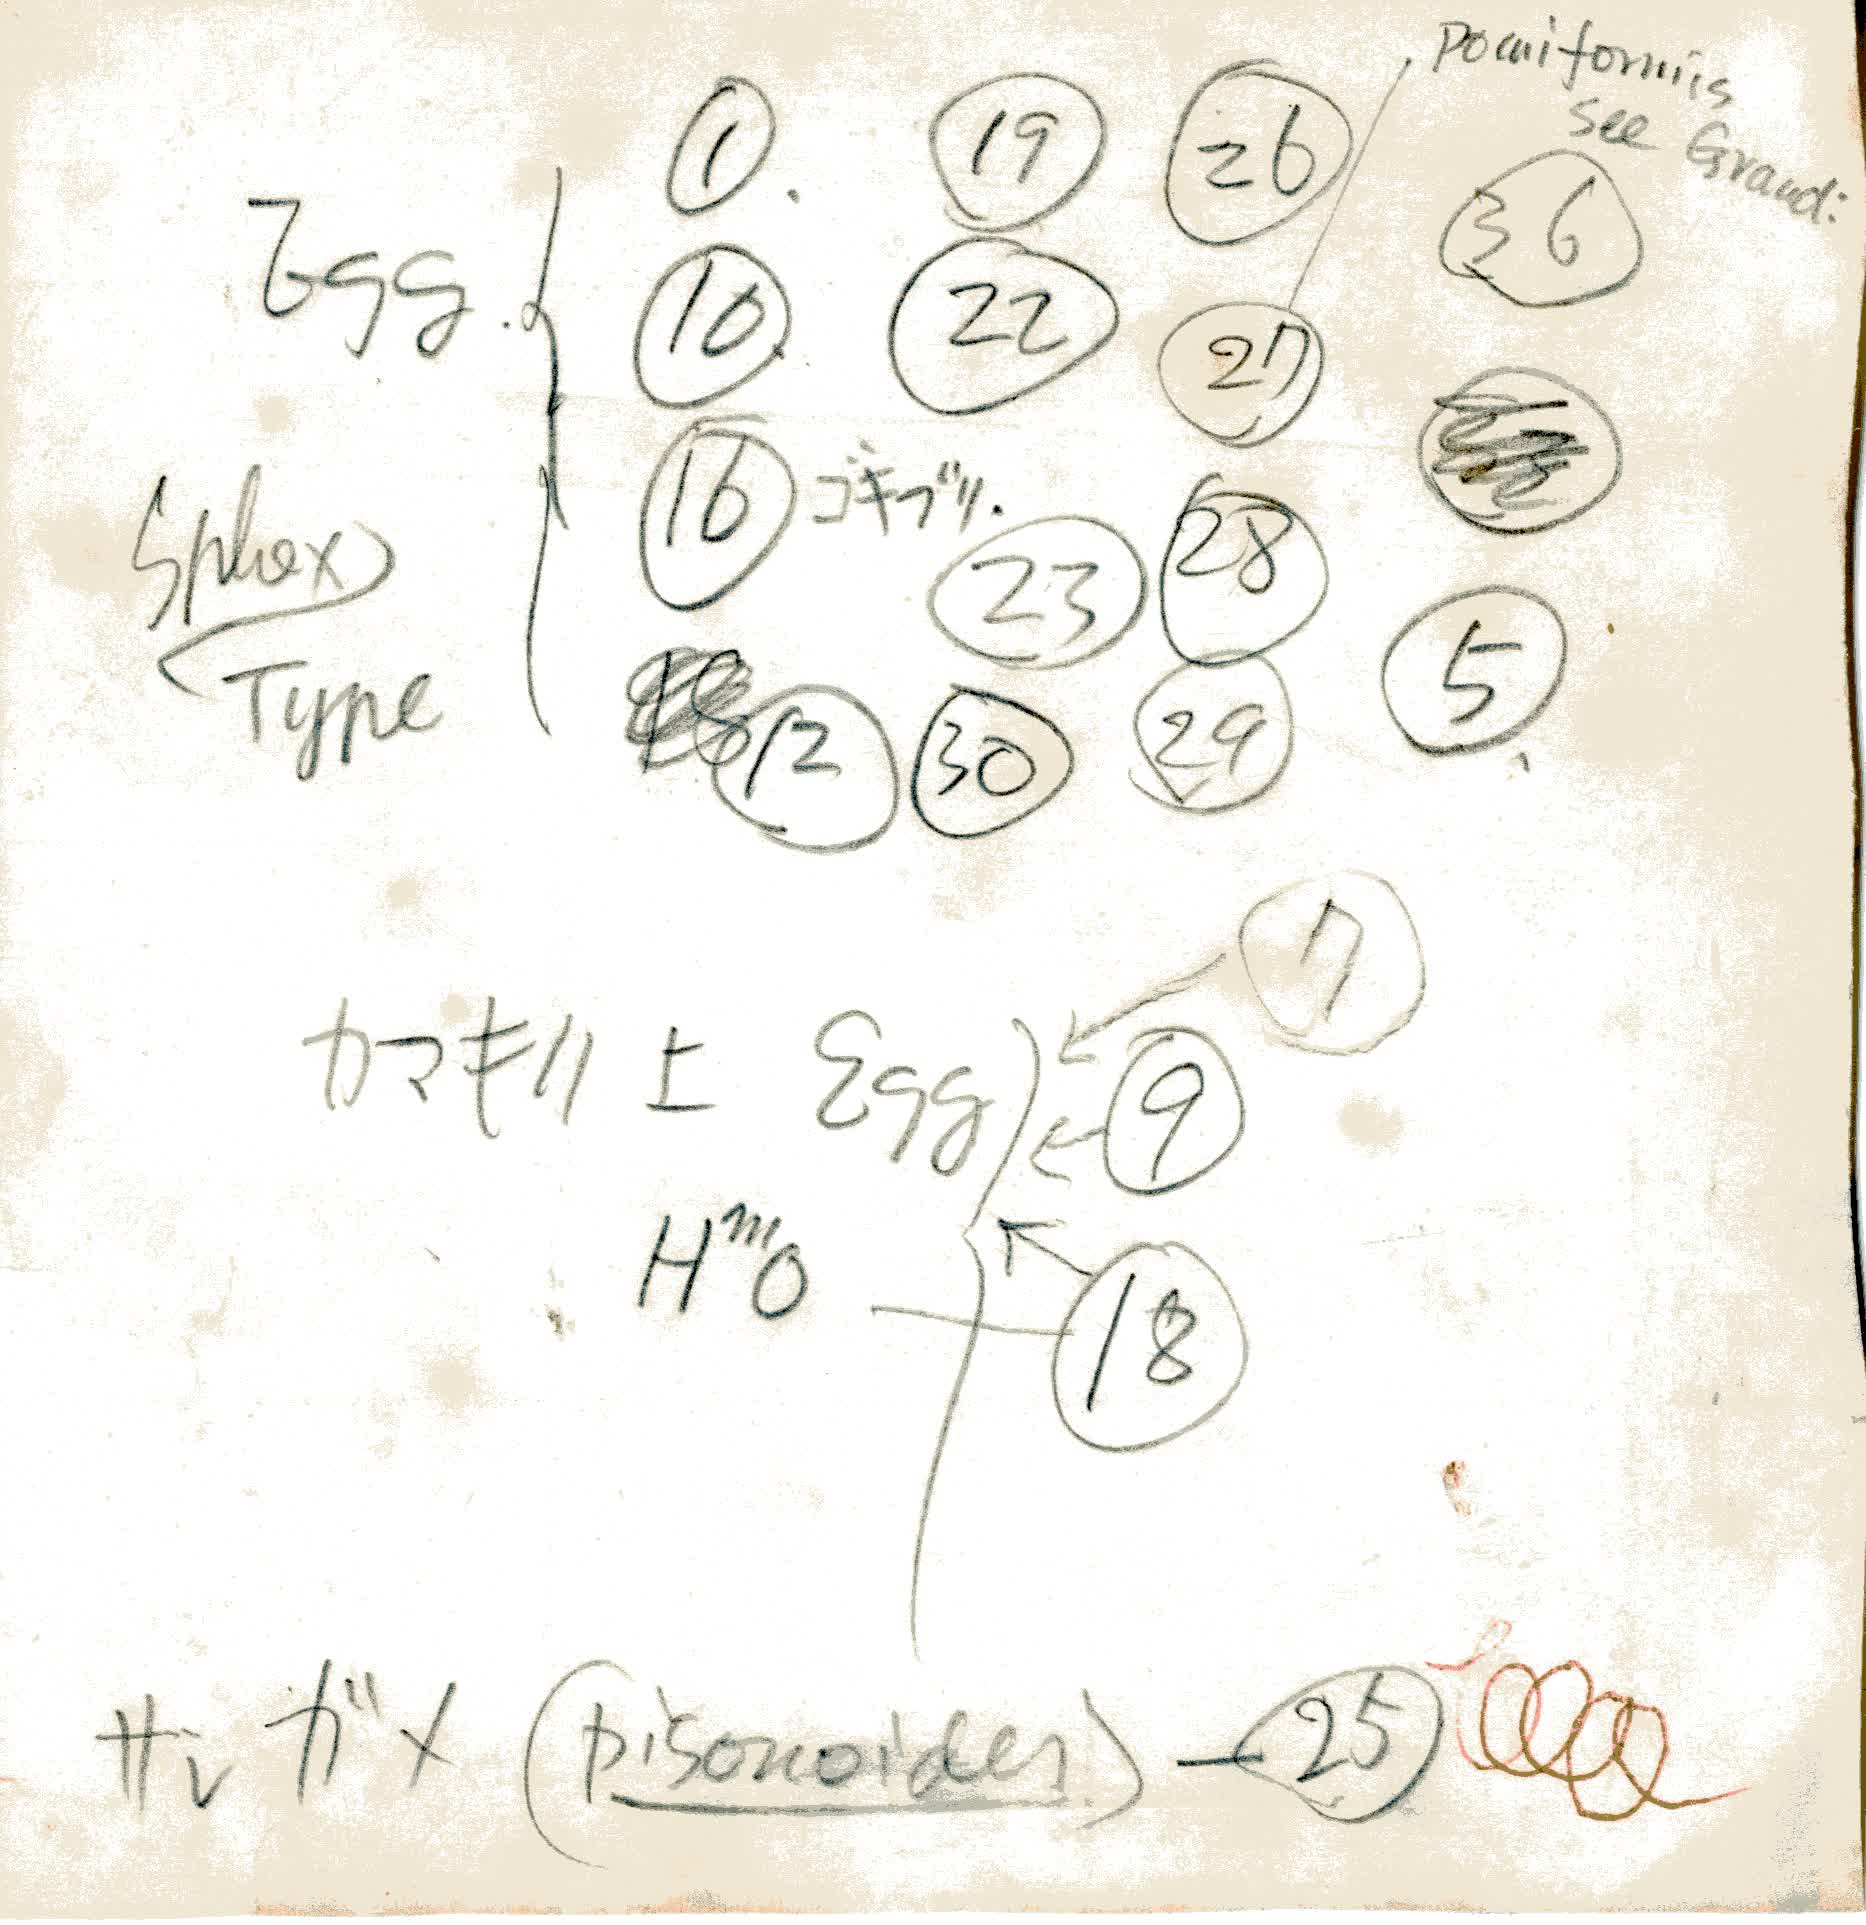 pomiformis
see Grand:
1 19 26 36
Egg.
10 22 27
16 ゴキブリ. 23 28
Sphex
Type
12 30 29 5
7
カマキリ上 Egg
9
H'''O
18
サシガメ (pisonoides) — 25